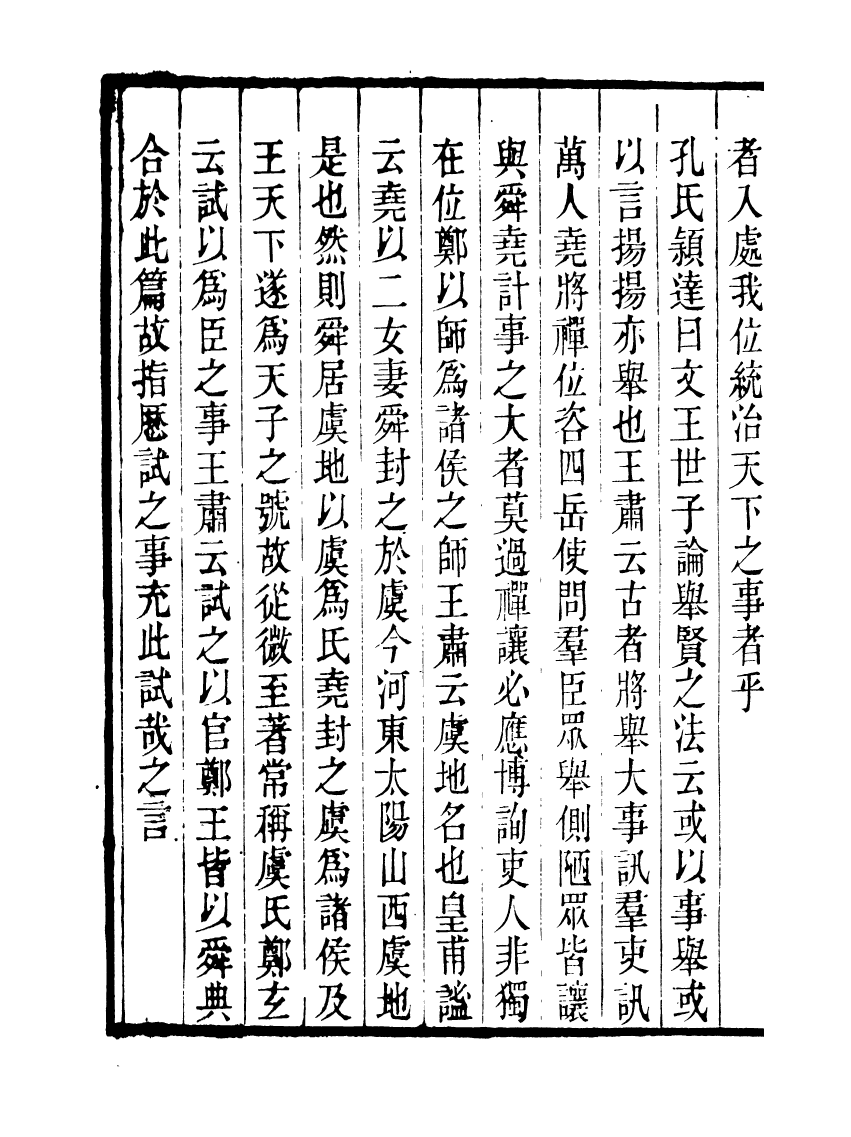 者入處我位統治天下之事者乎
孔氏穎達曰文王世子論舉賢之法云或以事舉或
以言揚揚亦舉也王肅云古者將舉大事訊羣吏訊
萬人堯將禪位咨四岳使問羣臣眾舉側陋眾皆讓
與舜堯計事之大者莫過禪讓必應博詢吏人非獨
在位鄭以師為諸侯之師王肅云虞地名也皇甫謐
云堯以二女妻舜封之於虞今河東太陽山西虞地
是也然則舜居虞地以虞為氏堯封之虞為諸侯及
王天下遂為天子之號故從微至著常稱虞氏鄭玄
云試以為臣之事王肅云試之以官鄭王皆以舜典
合於此篇故指歷試之事充此試哉之言